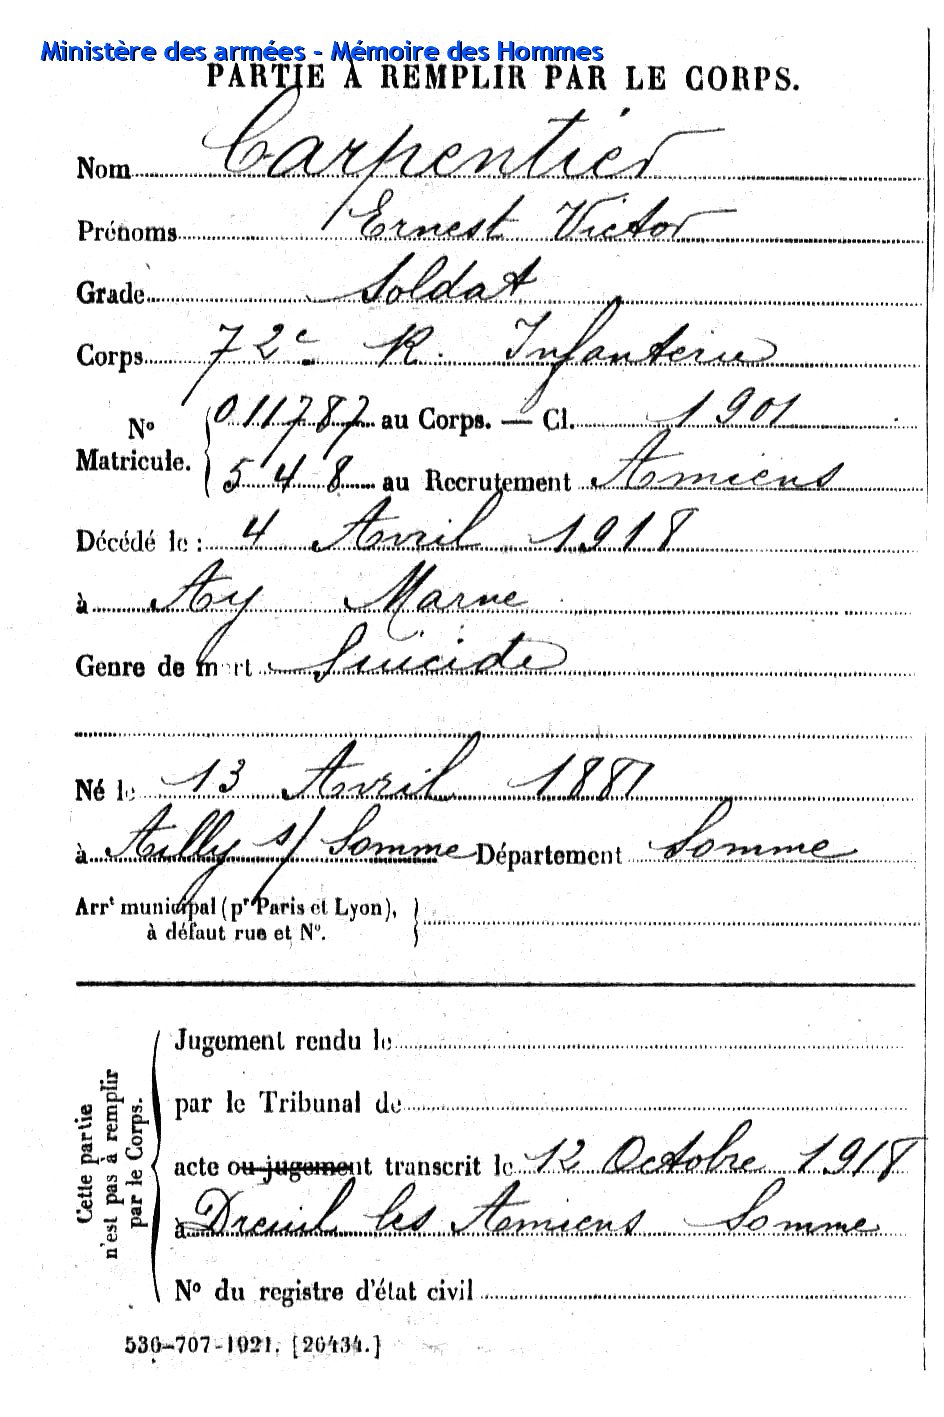 Ministère des armées - Mémoire des Hommes
PARTIE À REMPLIR PAR LE CORPS.
Nom Carpentier
Prénoms Ernest Victor
Grade Soldat
Corps 72e R. Infanterie
No Matricule. { 011787 au Corps. — Cl. 1901
548 au Recrutement Amiens
Décédé le : 4 Avril 1918
à Ay Marne
Genre de mort Suicide
Né le 13 Avril 1881
à Ailly s/ Somme Département Somme
Arrt municipal (pr Paris et Lyon),
à défaut rue et No.
Cette partie n'est pas à remplir par le Corps.
Jugement rendu le
par le Tribunal de
acte ou jugement transcrit le 12 Octobre 1918
à Dreuil les Amiens Somme
No du registre d'état civil
536-707-1921. [26434.]